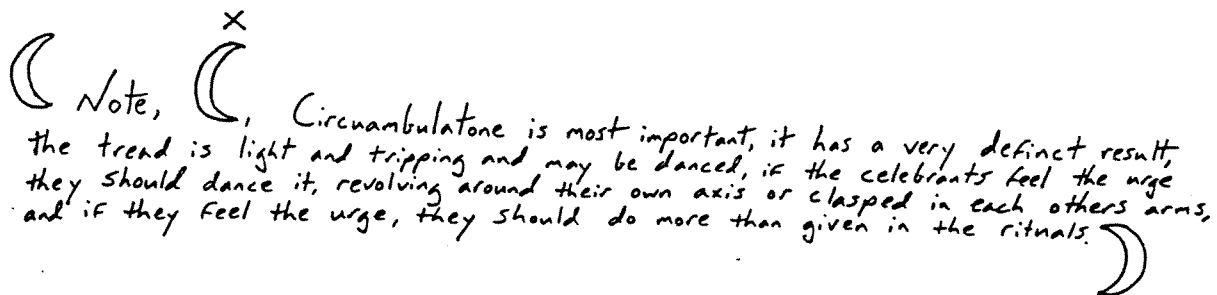 x
Note, , Circuambulatone is most important, it has a very definct result,
the tread is light and tripping and may be danced, if the celebrants feel the urge
they should dance it, revolving around their own axis or clasped in each others arms,
and if they feel the urge, they should do more than given in the rituals.